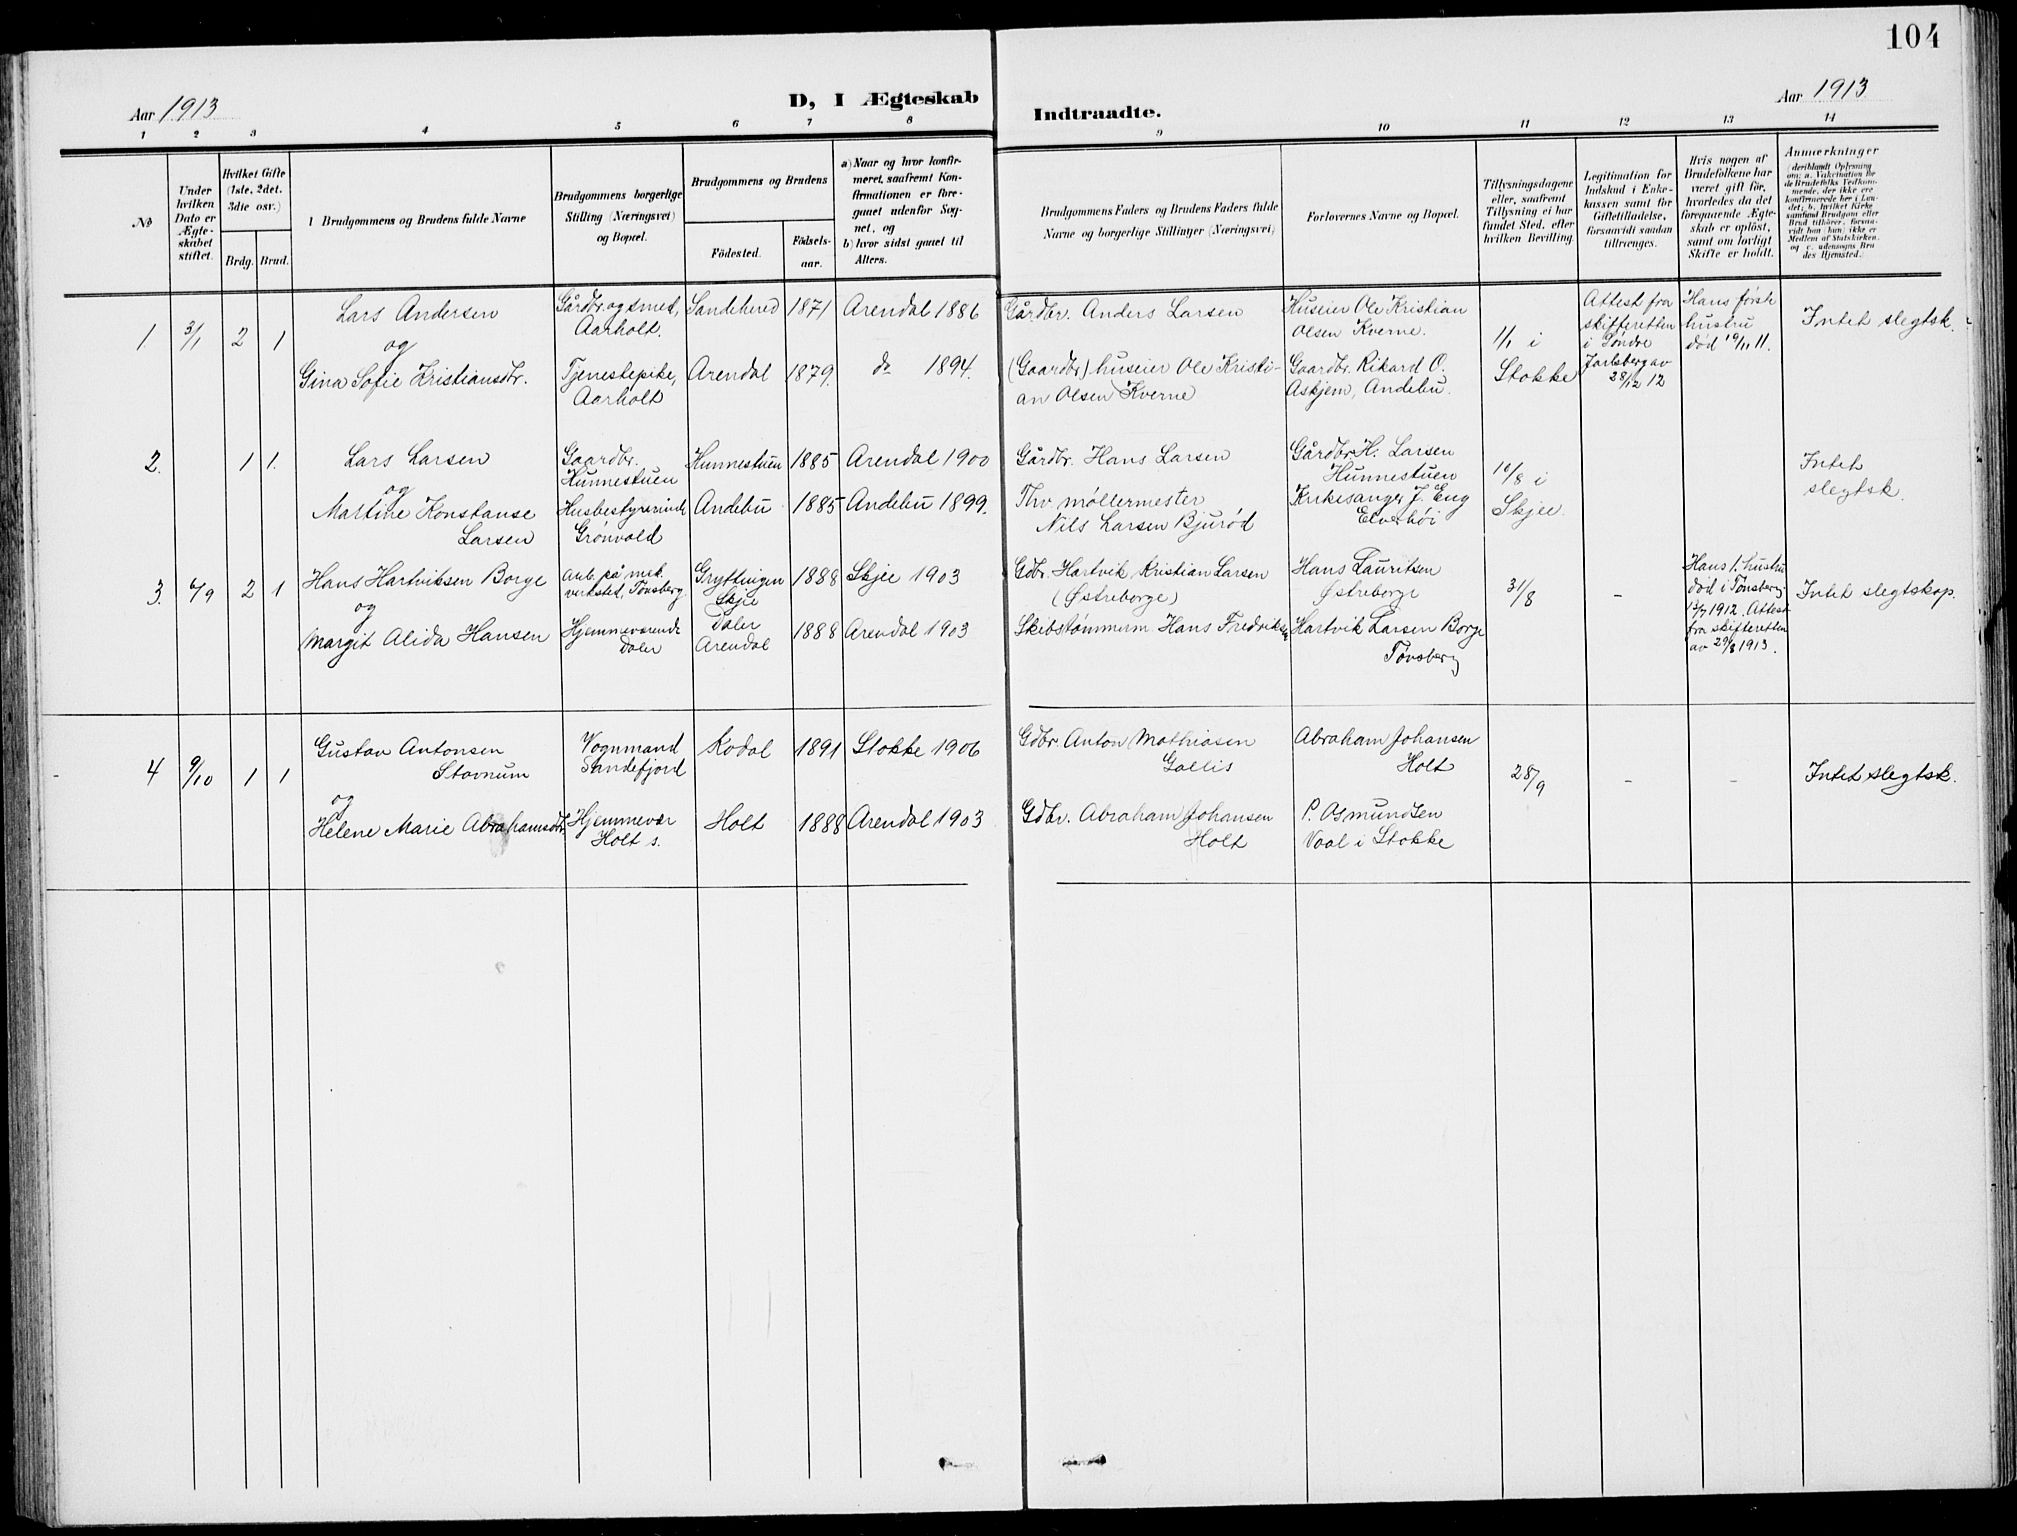 104
D, I Ægteskab Indtraadte.
Aar 1913
Aar 1913
1 2 3 4 5 6 7 8 9 10 11 12 13 14
No
Under hvilken Dato er Ægteskabet stiftet.
Hvilket Gifte (1ste, 2det, 3die osv.)
Brdg. Brud.
1 Brudgommens og Brudens fulde Navne
Brudgommens borgerlige Stilling (Næringsvei) og Bopæl.
Brudgommens og Brudens
Födested.
Födselsaar.
a) Naar og hvor konfirmeret, saafremt Konfirmationen er foregaaet udenfor Sognet, og
b) hvor sidst gaaet til Alters.
Brudgommens Faders og Brudens Faders fulde Navne og borgerlige Stillinger (Næringsvei)
Forlovernes Navne og Bopæl.
Tillysningsdagene eller, saafremt Tillysning ei har fundet Sted, efter hvilken Bevilling.
Legitimation for Indskud i Enkekassen samt for Giftetilladelse, forsaavidt saadan tiltrænges.
Hvis nogen af Brudefolkene har været gift før, hvorledes da det foregaaende Ægteskab er oplöst, samt om lovligt Skifte er holdt.
Anmærkninger
(deriblandt Oplysning om: a. Vakcination for de Brudefolks Vedkommende, der ikke ere konfirmerede her i Landet; b. hvilket Kirkesamfund Brudgom eller Brud tilhörer, forsaavidt han (hun) ikke er Medlem af Statskirken, og c. udensogns Brudes Hjemsted.)
1 3/1 2 1
Lars Andersen
og
Gina Sofie Kristiansdtr.
Gårdbr. og smed,
Aarholt.
Tjenestepike,
Aarholt
Sandehered 1871 Arendal 1886
Arendal 1879. do 1894.
Gårdbr. Anders Larsen
(Gaardbr.) huseier Ole Kristi-
an Olsen Kverne
Huseier Ole Kristian
Olsen Kverne.
Gaardbr. Rikard O.
Askjem, Andebu.
1/1 i
Stokke
Attest fra
skifteretten
i Søndre
Jarlsberg av
28/12 12
Hans første
hustru
død 10/11 11.
Intet slegtsk.
2. 1 1.
Lars Larsen
og
Martine Konstanse
Larsen
Gaardbr.
Hunnestuen
Husbestyrerinde
Grønvold
Hunnestuen 1885 Arendal 1900
Andebu 1885 Andebu 1899.
Gårdbr. Hans Larsen
Thv. møllermester
Nils Larsen Bjurød
Gårdbr. H. Larsen
Hunnestuen
Kirkesanger J. Eng
Elverhöi
10/8 i
Skjee.
Intet
slegtsk.
3. 4/9 2 1
Hans Hartviksen Borge
og
Margit Alida Hansen
Arb. på mek.
verksted, Tønsberg
Hjemmeværende
Daler
Gryttingen
Skjee
Daler
Arendal
1888 Skjee 1903
1888 Arendal 1903
Gdbr. Hartvik Kristian Larsen
(Østreborge)
Skibstømmerm Hans Fredriksen
Hans Lauritsen
Østreborge
Hartvik Larsen Borge
Tønsberg
31/8
-
Hans 1. hustru
død i Tønsberg
1912. Attest
fra skifteretten
av 29/8 1913.
Intet slegtskap.
4 9/10 1 1
Gustav Antonsen
Stavnum
og
Helene Marie Abrahamsdtr.
Vognmand
Sandefjord
Hjemmevær
Holt s.
Kodal 1891 Stokke 1906
Holt 1888 Arendal 1903
Gdbr. Anton Mathiasen
Gallis
Gdbr. Abraham Johansen
Holt
Abraham Johansen
Holt
P. Osmundsen
Vaal i Stokke
28/9
-
-
Intet slegtsk.